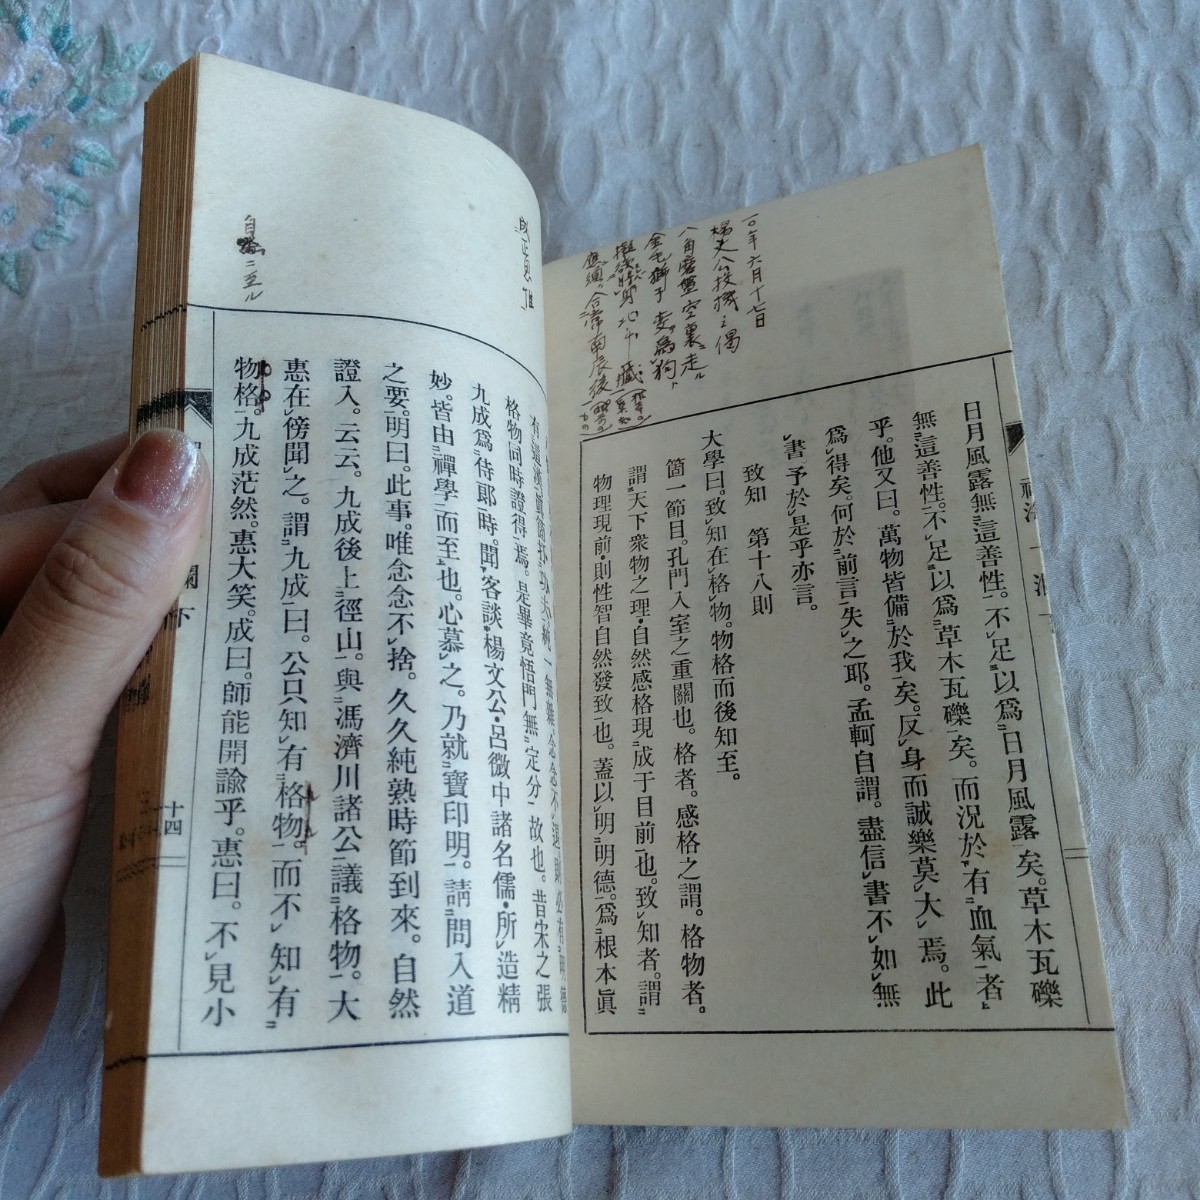 一〇年六月十七日
日月風露無這善性。不足以爲日月風露矣。草木瓦礫
無這善性。不足以爲草木瓦礫矣。而況於有血氣者
乎。他又曰。萬物皆備於我矣。反身而誠樂莫大焉。此
爲得矣。何於前言失之耶。孟軻自謂。盡信書不如無
書予於是乎亦言。
致知 第十八則
大學曰。致知在格物。物格而後知至。
箇一節目。孔門入室之重關也。格者。感格之謂。格物者。
謂天下衆物之理・自然感格現成于目前也。致知者。謂
物理現前・則性智自然發致也。蓋以明明德。爲根本眞
格物同時證得焉。是畢竟悟門無定分故也。昔宋之張
九成爲侍郎時。聞客談楊文公・呂微中諸名儒・所造精
妙。皆由禪學而至也。心慕之。乃就寶印明。請問入道
之要。明曰。此事。唯念念不捨。久久純熟時節到來。自然
證入。云云。九成後上徑山。與馮濟川諸公議格物。大
惠在傍聞之。謂九成曰。公只知有格物。而不知有
物格。九成茫然。惠大笑。成曰。師能開諭乎。惠曰。不見小
十四